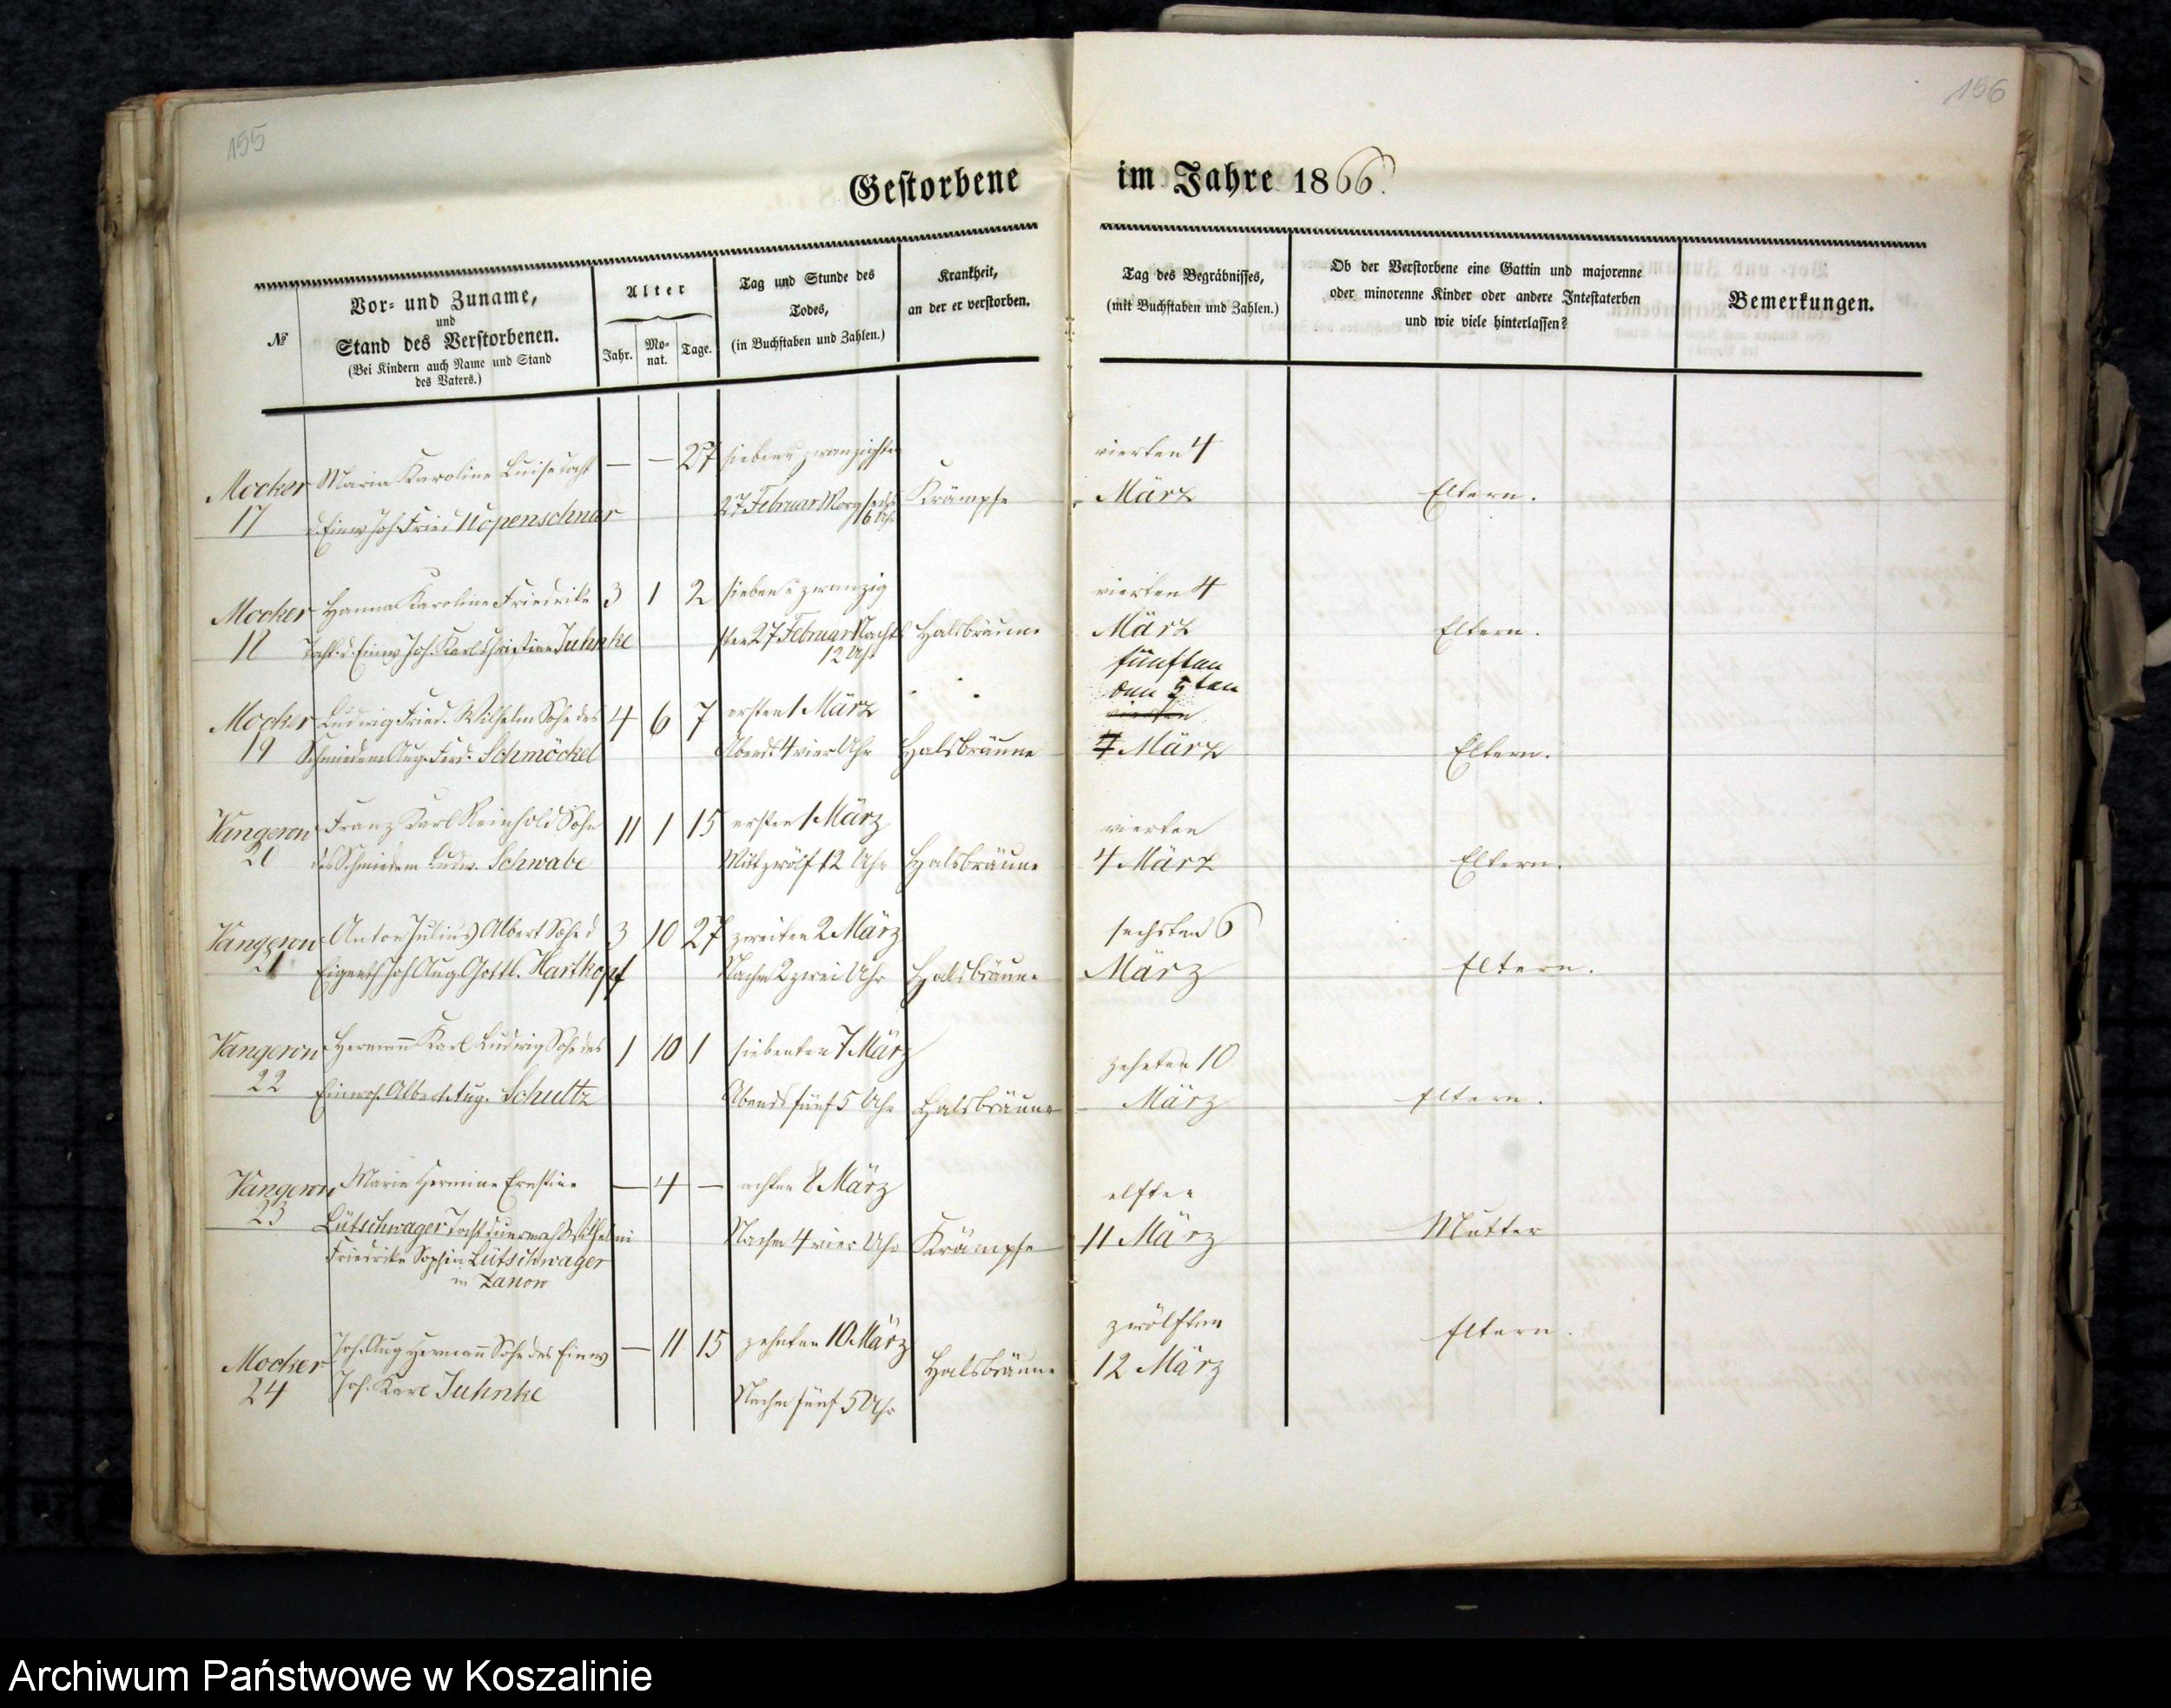 155
156
Gestorbene im Jahre 1866.
№
Vor- und Zuname,
und
Stand des Verstorbenen.
(Bei Kindern auch Name und Stand
des Vaters.)
Alter
Jahr.
Mo-
nat.
Tage.
Tag und Stunde des
Todes,
(in Buchstaben und Zahlen.)
Krankheit,
an der er verstorben.
Tag des Begräbnisses,
(mit Buchstaben und Zahlen.)
Ob der Verstorbene eine Gattin und majorenne
oder minorenne Kinder oder andere Intestaterben
und wie viele hinterlassen?
Bemerkungen.
Mocker Maria Karoline Luise — — 27 sieben u zwanzigsten vierten 4
17 d. Einw Joh. Fried Kopenschnar 27 Februar Morg sechs Krämpfe März Eltern.
6 Uhr
Mocker Hanna Karoline Friedrike 3 1 2 sieben u zwanzig vierten 4
18 Tocht. d. Einw Joh. Karl Christian Juhnke sten 27 Februar Nachts Halsbräune März Eltern.
12 Uhr
fünften
den 5ten
Mocker Ludwig Fried. Wilhelm Sohn des 4 6 7 ersten 1 März vierten
19 Schmiedem Aug. Ferd. Schmöckel Abends 4 vier Uhr Halsbräune 4 März Eltern.
Vangerow Franz Karl Reinhold Sohn 11 1 15 ersten 1 März vierten
20 des Schmiedem Ludw. Schwabe Mitt zwölf 12 Uhr Halsbräune 4 März Eltern.
Vangerow Anton Julius Albert Sohn d 3 10 27 zweiten 2 März sechsten 6
21 Eigenth Joh Aug Gottl. Hartkopf Nachm 2 zwei Uhr Halsbräune März Eltern.
Vangerow Hermann Karl Ludwig Sohn des 1 10 1 siebenten 7 März zehnten 10
22 Einw. Albert Aug. Schultz Abends fünf 5 Uhr Halsbräune März Eltern.
Vangerow Marie Hermine Ernstine — 4 — achten 8 März elften
23 Lütschwager Tocht d unvereh Wilhelmi Nachm 4 vier Uhr Krämpfe 11 März Mutter
Friedrike Sophie Lütschwager
in Zanow
Mocker Joh. Aug Hermann Sohn des Einw — 11 15 zehnten 10 März zwölften Eltern.
24 Joh. Karl Juhnke Nachm fünf 5 Uhr Halsbräune 12 März
Archiwum Państwowe w Koszalinie